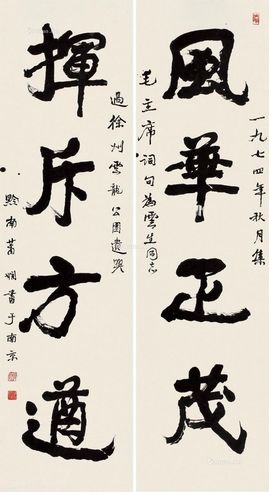 一九七四年秋月集
風華正茂
毛主席詞句為雲生同志
過徐州雲龍公園遣興
揮斥方遒
黔南蕭嫻書于南京